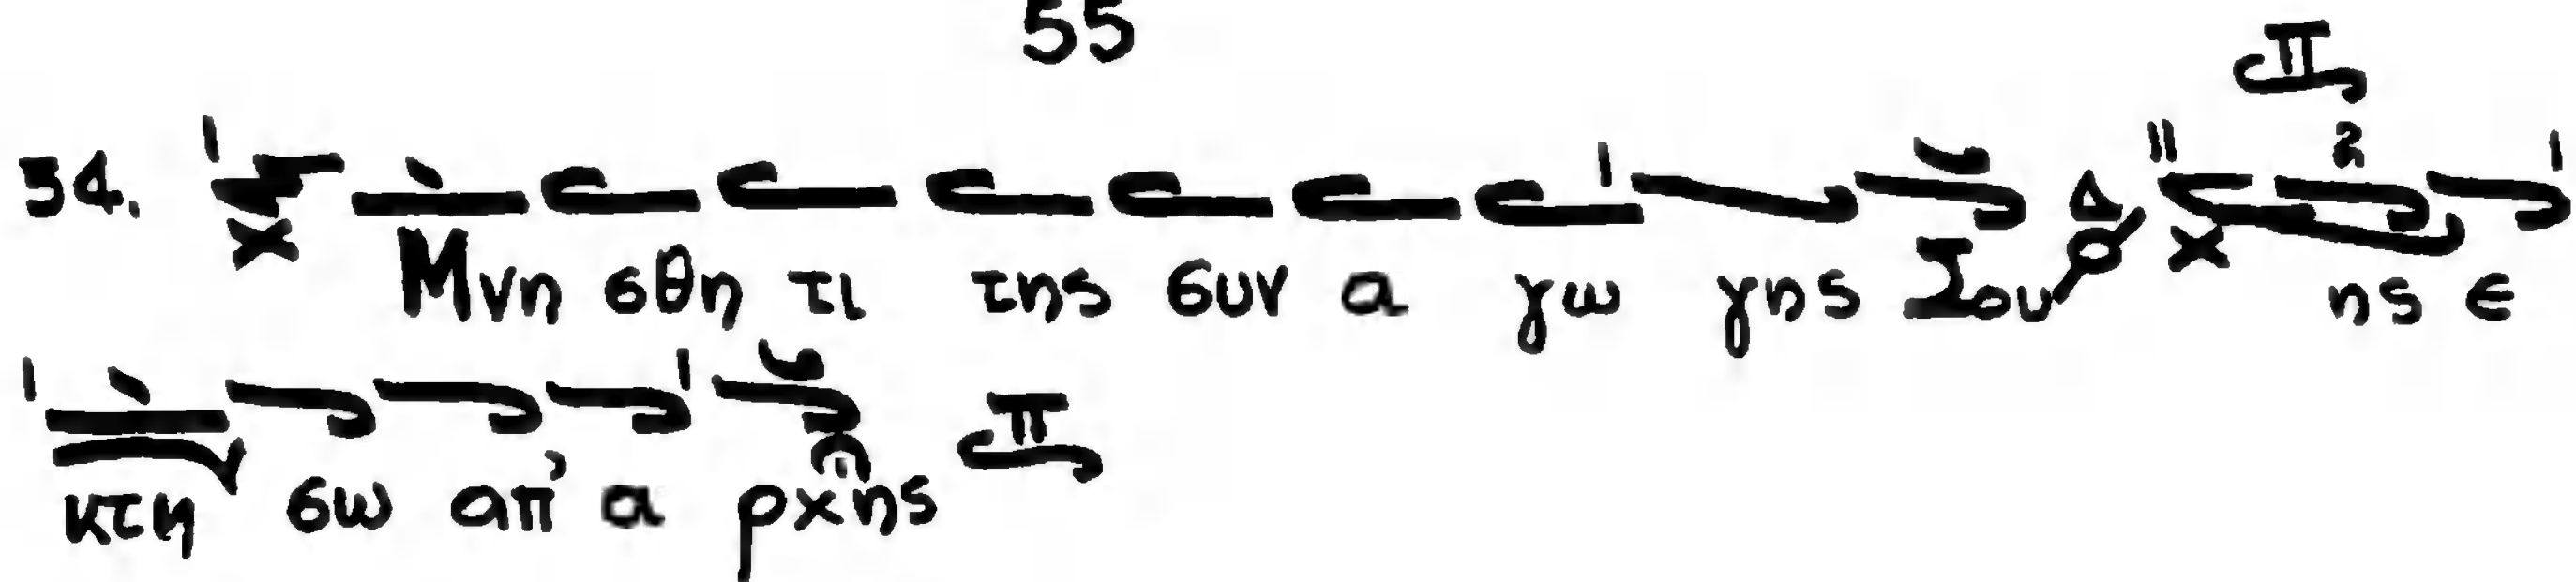 55
34. Μνη σθη τι της συν α γω γης Σου Δ Π ης ε
κτη σω απ' α ρχης Π